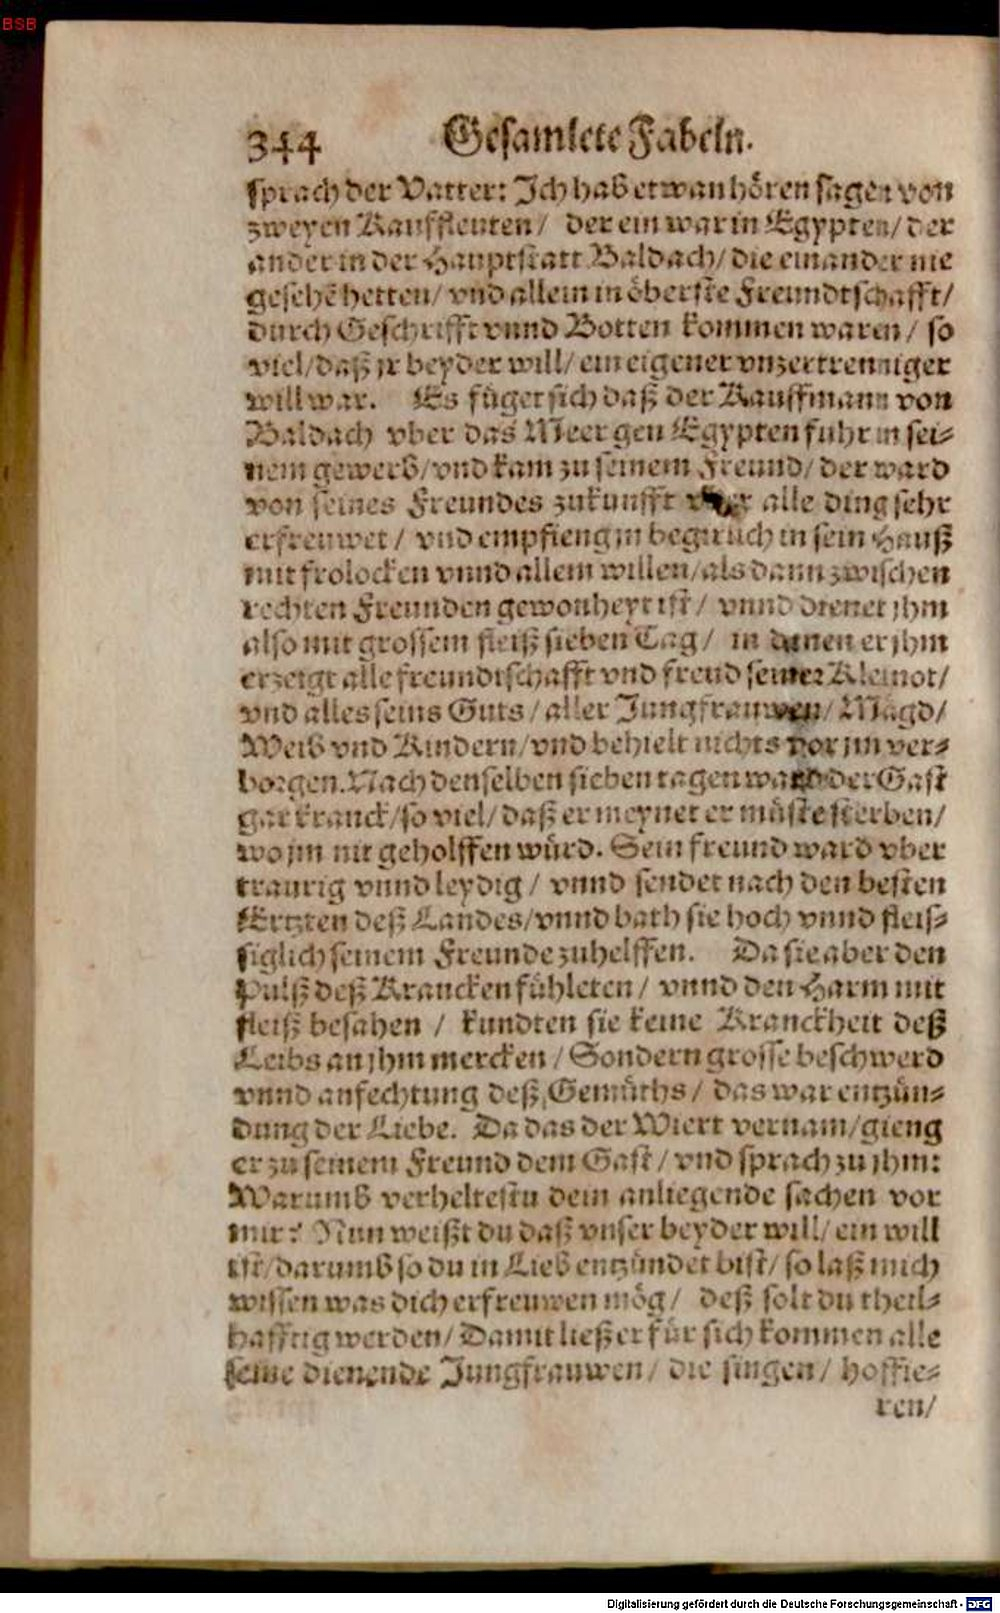 BSB
344 Gesamlete Fabeln.
sprach der Vatter: Ich hab etwan hören sagen von
zweyen Kauffleuten / der ein war in Egypten / der
ander in der Hauptstatt Baldach / die einander nie
gesehẽ hetten / vnd allein in öberste Freundtschafft /
durch Geschrifft vnnd Botten kommen waren / so
viel / daß jr beyder will / ein eigener vnzertrenniger
will war. Es füget sich daß der Kauffmann von
Baldach vber das Meer gen Egypten fuhr in sei-
nem gewerb / vnd kam zu seinem Freund / der ward
von seines Freundes zukunfft vber alle ding sehr
erfreuwet / vnd empfieng jn begirlich in sein Hauß
mit frolocken vnnd allem willen / als dann zwischen
rechten Freunden gewonheyt ist / vnnd dienet jhm
also mit grossem fleiß sieben Tag / in denen er jhm
erzeigt alle freundtschafft vnd freud seiner Kleinot /
vnd alles seins Guts / aller Jungfrauwen / Mägd /
Weib vnd Kindern / vnd behielt nichts vor jm ver-
borgen. Nach denselben sieben tagen ward der Gast
gar kranck / so viel / daß er meynet er müste sterben /
wo jm nit geholffen würd. Sein freund ward vber
traurig vnnd leydig / vnnd sendet nach den besten
Ertzten deß Landes / vnnd bath sie hoch vnnd fleis-
siglich seinem Freunde zuhelffen. Da sie aber den
Pulß deß Krancken fühleten / vnnd den Harm mit
fleiß besahen / kundten sie keine Kranckheit deß
Leibs an jhm mercken / Sondern grosse beschwerd
vnnd anfechtung deß Gemüths / das war entzün-
dung der Liebe. Da das der Wiert vernam / gieng
er zu seinem Freund dem Gast / vnd sprach zu jhm:
Warumb verheltestu dein anliegende sachen vor
mir? Nun weißt du daß vnser beyder will / ein will
ist / darumb so du in Lieb entzündet bist / so laß mich
wissen was dich erfreuwen mög / deß solt du theil-
hafftig werden / Damit ließ er für sich kommen alle
seine dienende Jungfrauwen / die singen / hoffie-
ren /
Digitalisierung gefördert durch die Deutsche Forschungsgemeinschaft - DFG